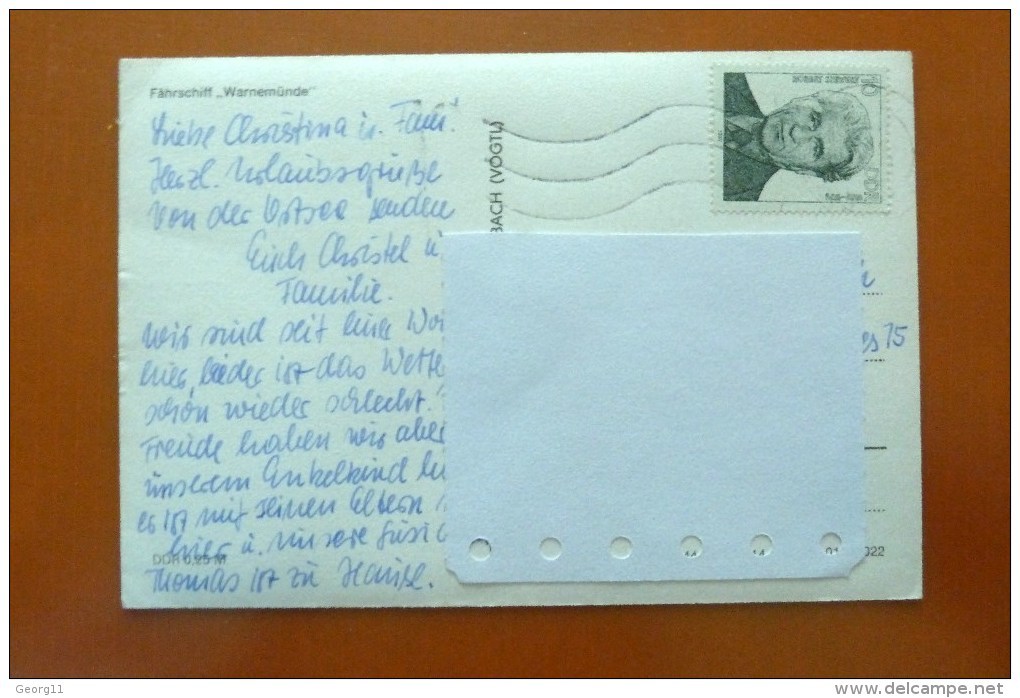 Fährschiff „Warnemünde"
Liebe Christina u. Fam.!
Herzl. Urlaubsgrüße
von der Ostsee senden
Euch Christel u.
Familie.
Wir sind seit einer Wo
hier, leider ist das Wette
schon wieder schlecht.
Freude haben wir aber
unserem Enkelkind
er ist mit seinen Eltern
hier u. unsere
Thomas ist zu Hause.
DDR 0,25 M
BACH (VOGTL)
10
DDR
es 15
14
14
01
022
Georg11
www.delcampe.net